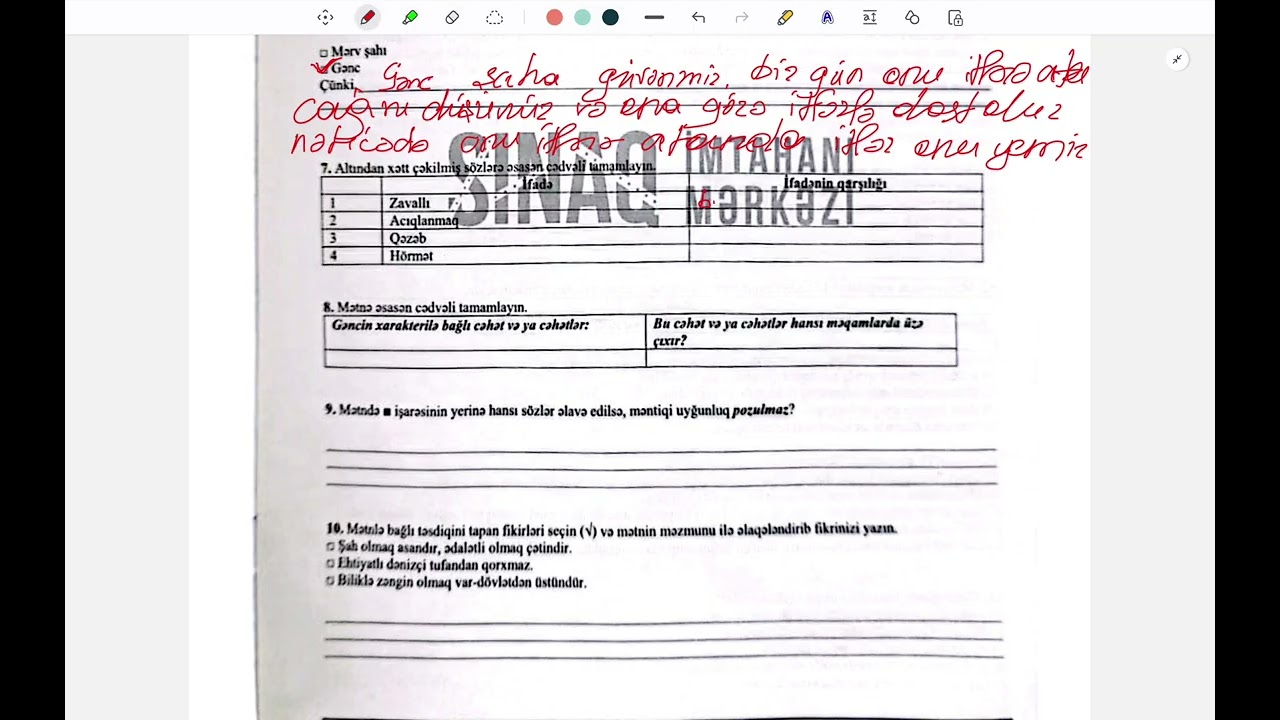 □ Mərv şahı
Gənc
Çünki, Gənc şaha güvənmir. bir gün onu itlərə
düşünür və ona görə itlərlə dost olur
nəticədə onu itlərə atanda itlər onu yemir
SINAQ İMTAHANI MƏRKƏZİ
7. Altından xətt çəkilmiş sözlərə əsasən cədvəli tamamlayın.
İfadə İfadənin qarşılığı
1 Zavallı
2 Acıqlanmaq
3 Qəzəb
4 Hörmət
8. Mətnə əsasən cədvəli tamamlayın.
Gəncin xarakterilə bağlı cəhət və ya cəhətlər: Bu cəhət və ya cəhətlər hansı məqamlarda üzə
çıxır?
9. Mətndə ■ işarəsinin yerinə hansı sözlər əlavə edilsə, məntiqi uyğunluq pozulmaz?
10. Mətnlə bağlı təsdiqini tapan fikirləri seçin (√) və mətnin məzmunu ilə əlaqələndirib fikrinizi yazın.
□ Şah olmaq asandır, ədalətli olmaq çətindir.
□ Ehtiyatlı dənizçi tufandan qorxmaz.
□ Biliklə zəngin olmaq var-dövlətdən üstündür.